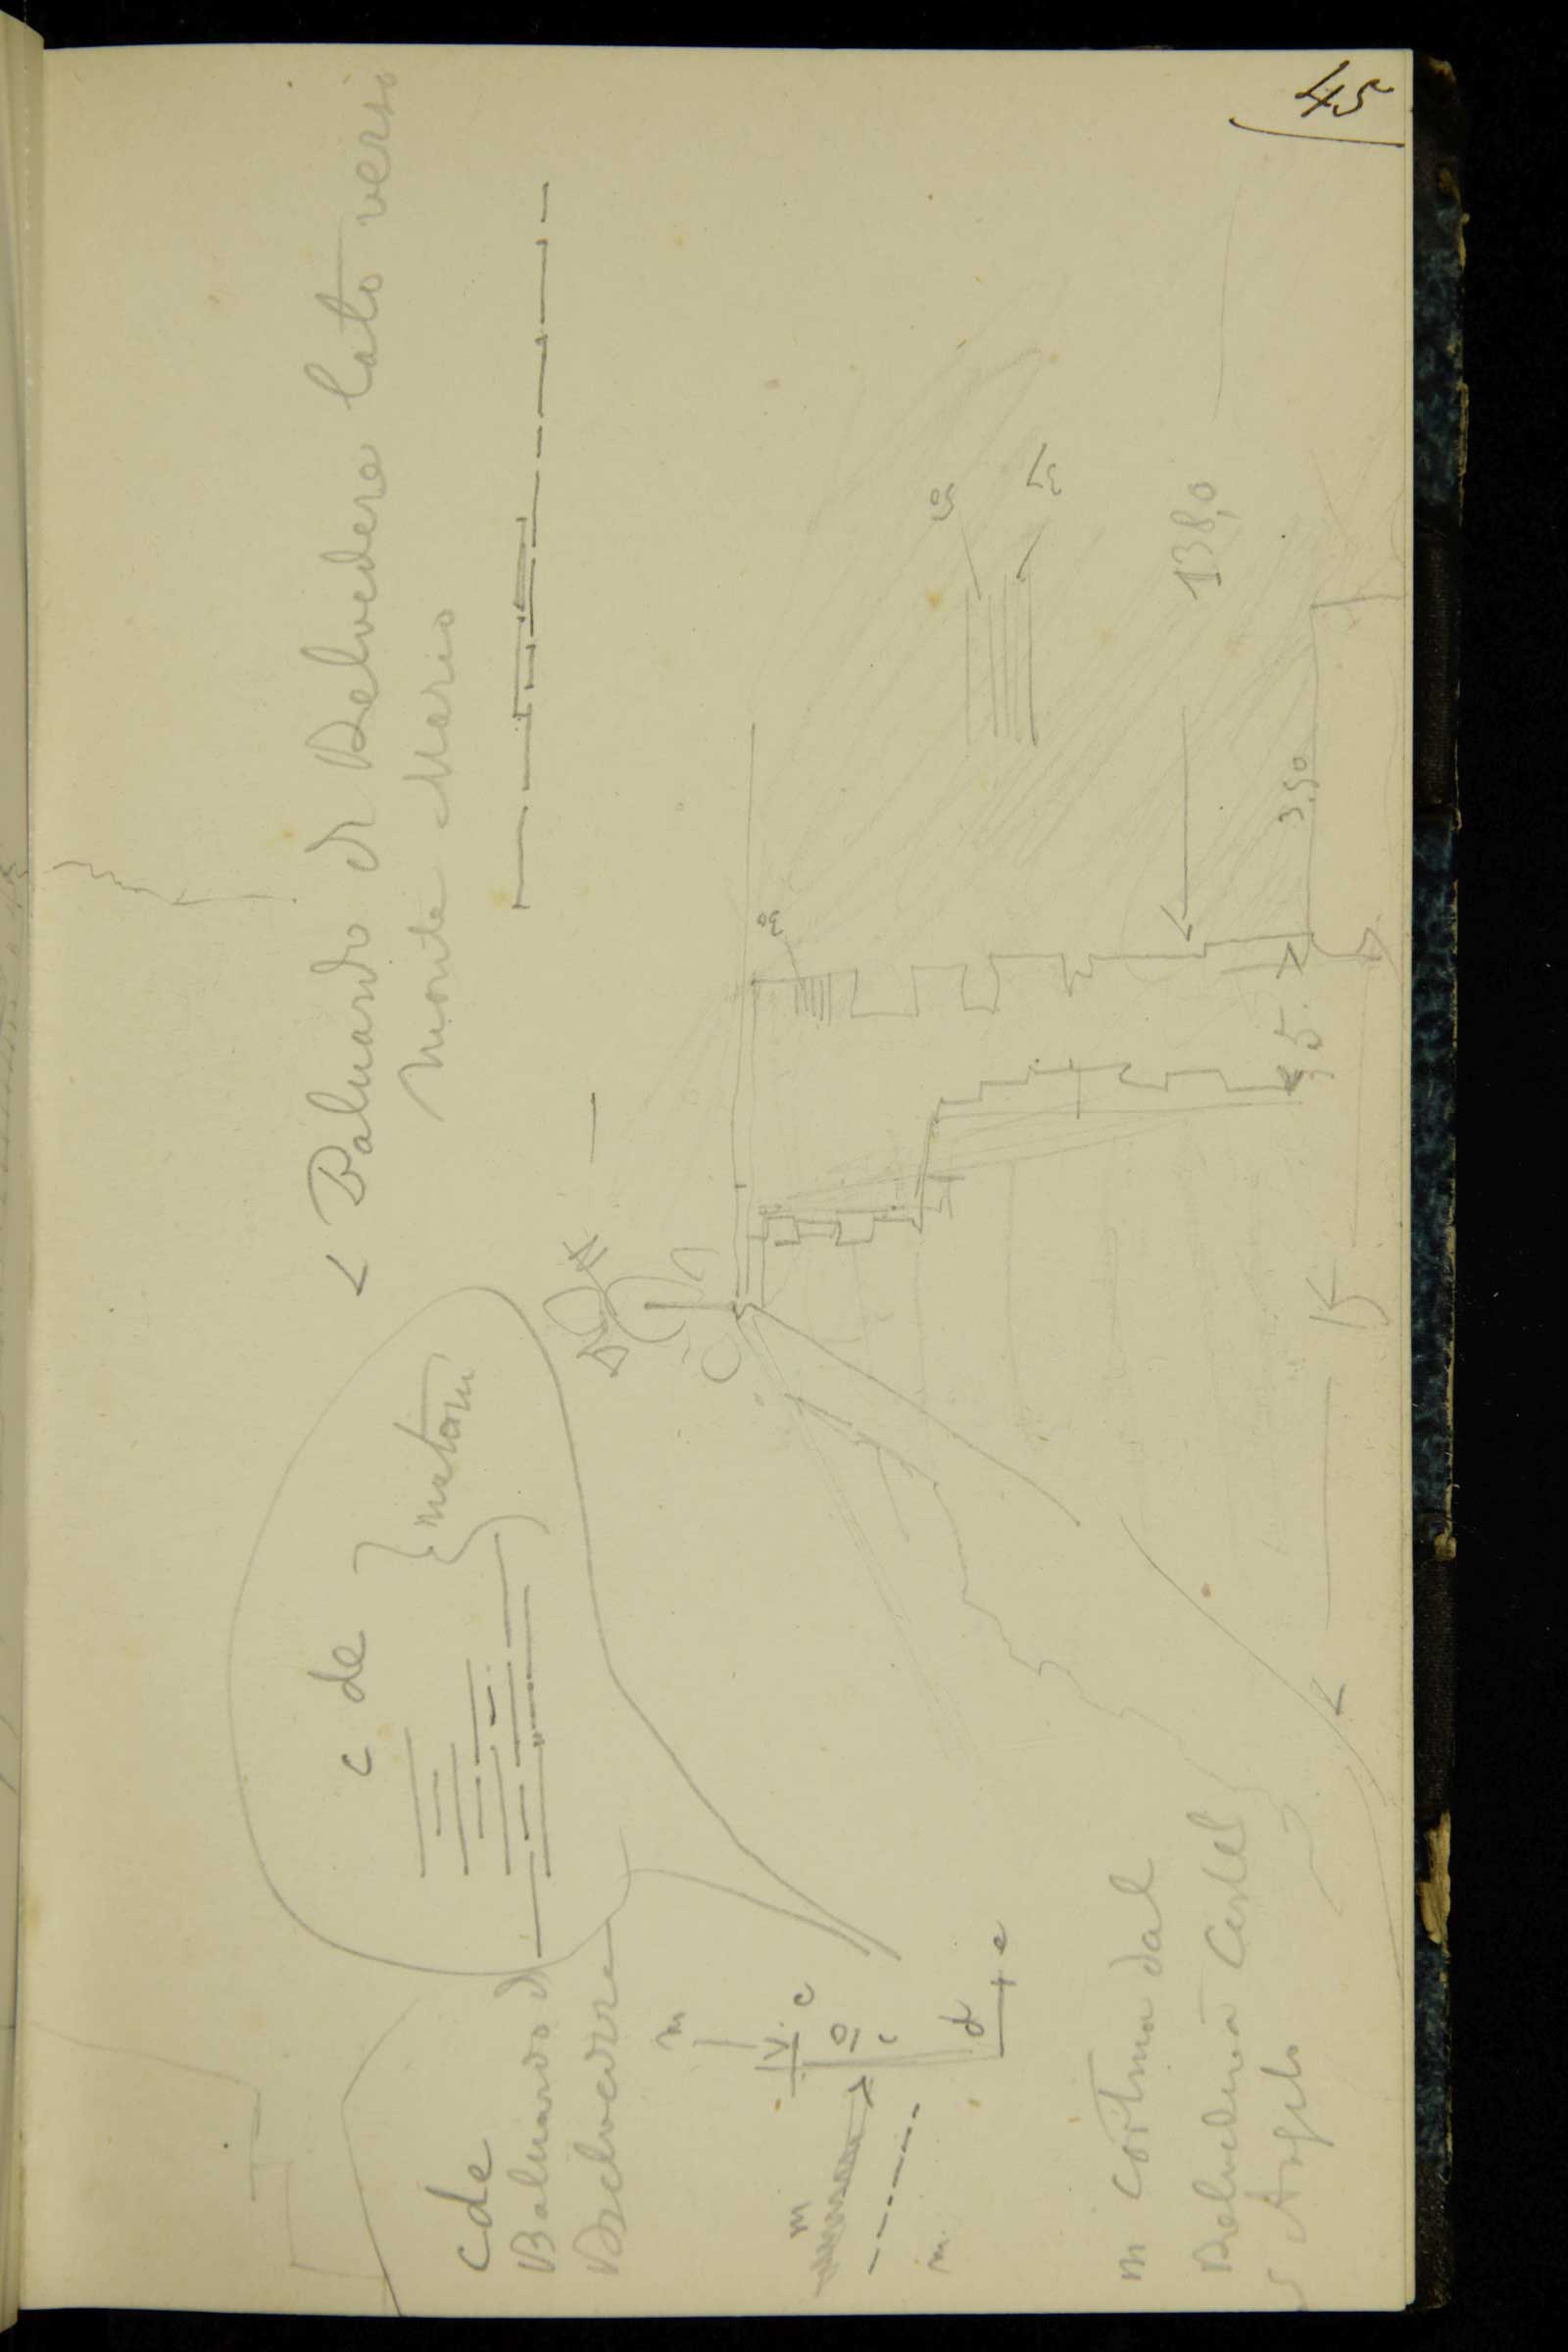 45
L Baluardo di Belvedere lato verso
Monte Mario
c de } mattoni
cde
Baluardo di
Belvedere
m
V
c
d
e
m
m
m cortina dal
Belvedere a Castel
S Angelo
138,0
3.50
35
15